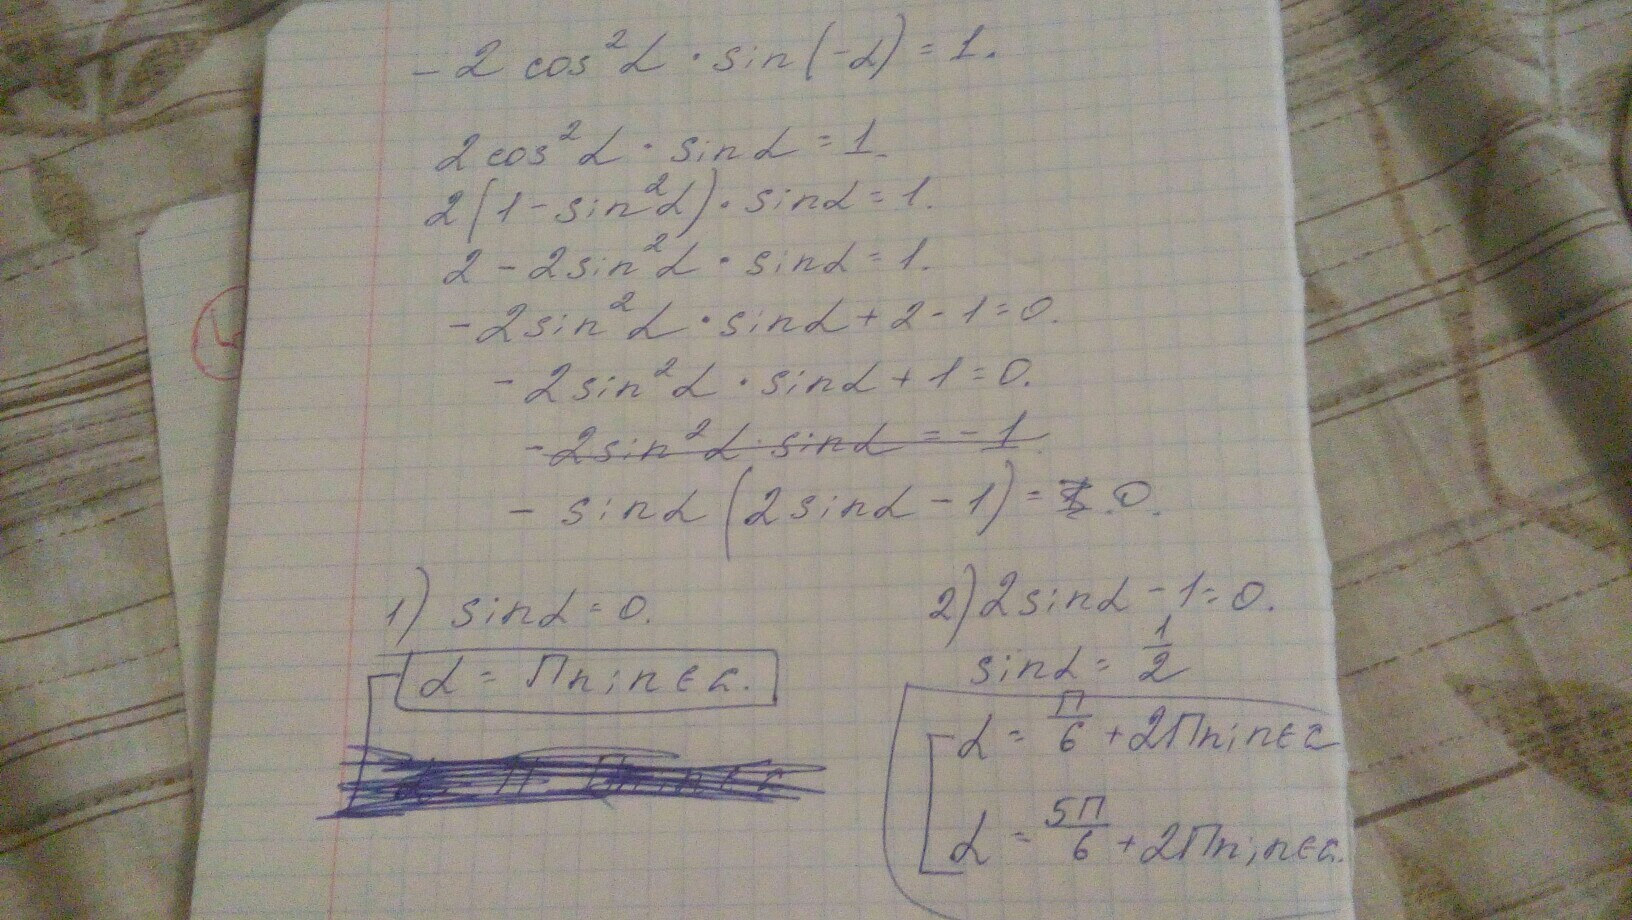 - 2 cos²α · sin(-α) = 1.
2 cos²α · sinα = 1.
2(1 - sin²α) · sinα = 1.
2 - 2sin²α · sinα = 1.
- 2sin²α · sinα + 2 - 1 = 0.
- 2sin²α · sinα + 1 = 0.
- 2sin²α · sinα = - 1
- sinα (2sinα - 1) = 0.
1) sinα = 0.
α = Пn; n ∈ z.
2) 2sinα - 1 = 0.
sinα = 1/2
α = П/6 + 2Пn; n ∈ z
α = 5П/6 + 2Пn; n ∈ z.